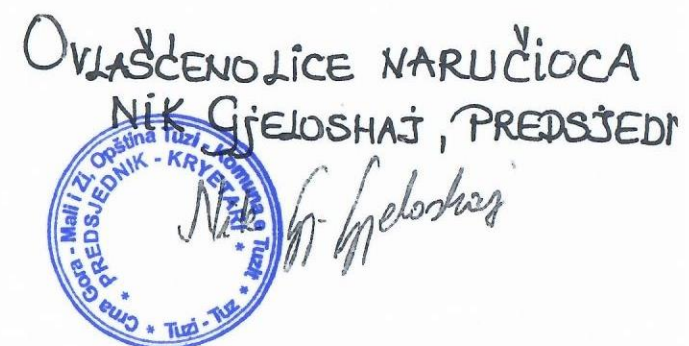 OVLAŠĆENO LICE NARUČIOCA
NIK GJELOSHAJ, PREDSJEDI
Crna Gora - Mali i Zi, Opština Tuzi - Komuna e Tuzit * Tuzi - Tuz *
* PREDSJEDNIK - KRYETARI *
Nik Gj. Gjeloshaj